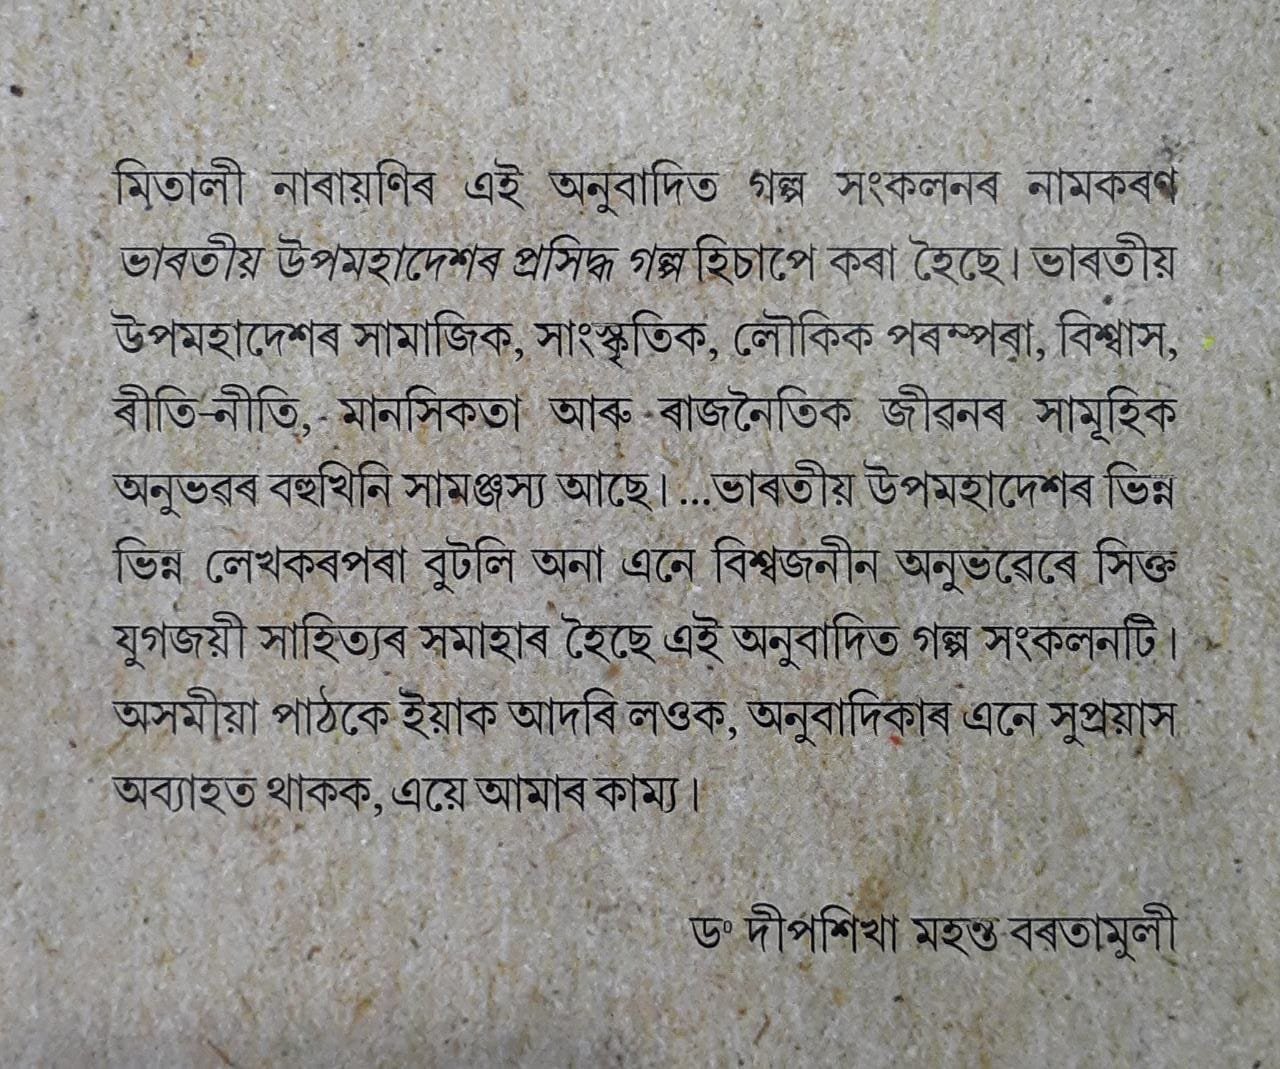 মিতালী নাৰায়ণিৰ এই অনুবাদিত গল্প সংকলনৰ নামকৰণ
ভাৰতীয় উপমহাদেশৰ প্ৰসিদ্ধ গল্প হিচাপে কৰা হৈছে। ভাৰতীয়
উপমহাদেশৰ সামাজিক, সাংস্কৃতিক, লৌকিক পৰম্পৰা, বিশ্বাস,
ৰীতি-নীতি, মানসিকতা আৰু ৰাজনৈতিক জীৱনৰ সামূহিক
অনুভৱৰ বহুখিনি সামঞ্জস্য আছে। ...ভাৰতীয় উপমহাদেশৰ ভিন্ন
ভিন্ন লেখকৰপৰা বুটলি অনা এনে বিশ্বজনীন অনুভৱেৰে সিক্ত
যুগজয়ী সাহিত্যৰ সমাহাৰ হৈছে এই অনুবাদিত গল্প সংকলনটি।
অসমীয়া পাঠকে ইয়াক আদৰি লওক, অনুবাদিকাৰ এনে সুপ্ৰয়াস
অব্যাহত থাকক, এয়ে আমাৰ কাম্য।
ড° দীপশিখা মহন্ত বৰতামুলী